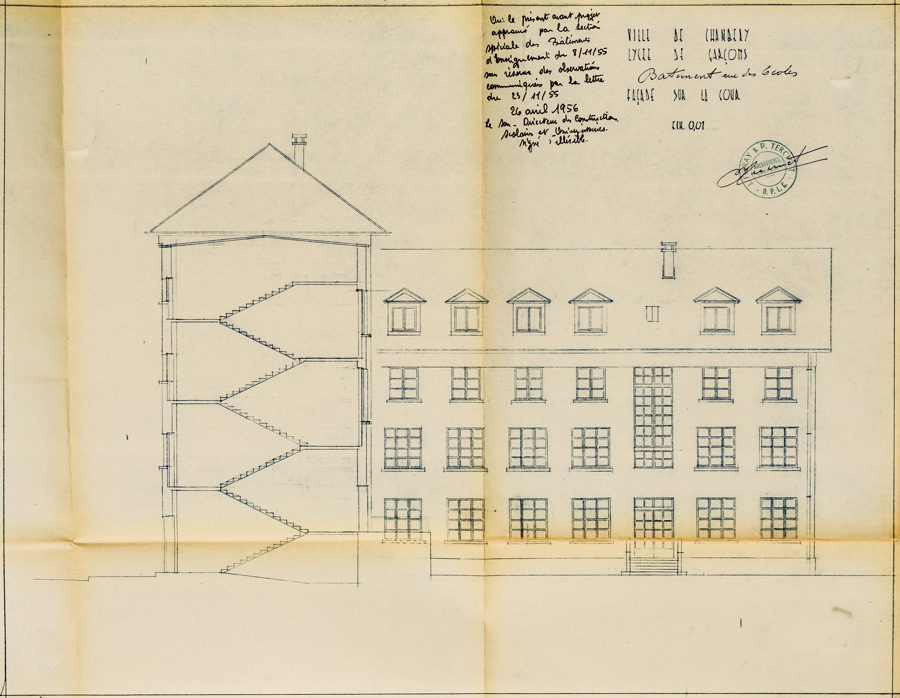 Vu le présent avant projet
approuvé par la section
spéciale des Bâtiments
d'Enseignement du 8/11/55
sous réserve des observations
communiquées par la lettre
du 23/11/55
26 avril 1956
Le Directeur des Constructions
Scolaires et Universitaires
signé illisible.
VILLE DE CHAMBERY
LYCÉE DE GARÇONS
Batiment rue des Ecoles
FAÇADE SUR LA COUR
ECH. 0,01
& P. TERC
ARCHITECTES
D.P.L.G.